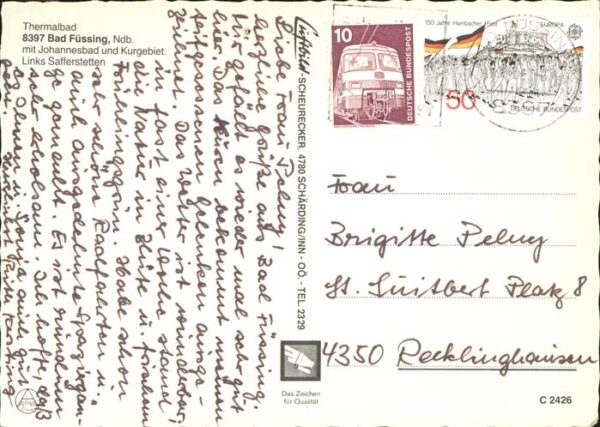 Thermalbad
8397 Bad Füssing, Ndb.
mit Johannesbad und Kurgebiet.
Links Safferstetten
Liebe Frau Pelny!
herzliche Grüße aus Bad Füssing.
Mir gefällt es wieder mal sehr gut
hier. Das Kuren bekommt meinen
Gelenken ausge-
zeichnet. Das Wetter ist wunderbar,
seit fast einer Woche stand
Flieder in Blüte u.
Habe schon
sehr schöne Radfahrten
auch ausgedehnte Spaziergän-
ge gemacht. Es ist
sehr erholsam. Ich hoffe, daß
es Ihnen u. auch gut
Luftbild SCHEURECKER 4780 SCHÄRDING/INN · OÖ. · TEL. 2329
10
DEUTSCHE BUNDESPOST
150 Jahre Hambacher Fest
EUROPA
50
DEUTSCHE BUNDESPOST
Frau
Brigitte Pelny
St. Suitbert Platz 8
4350 Recklinghausen
Das Zeichen
für Qualität
C 2426